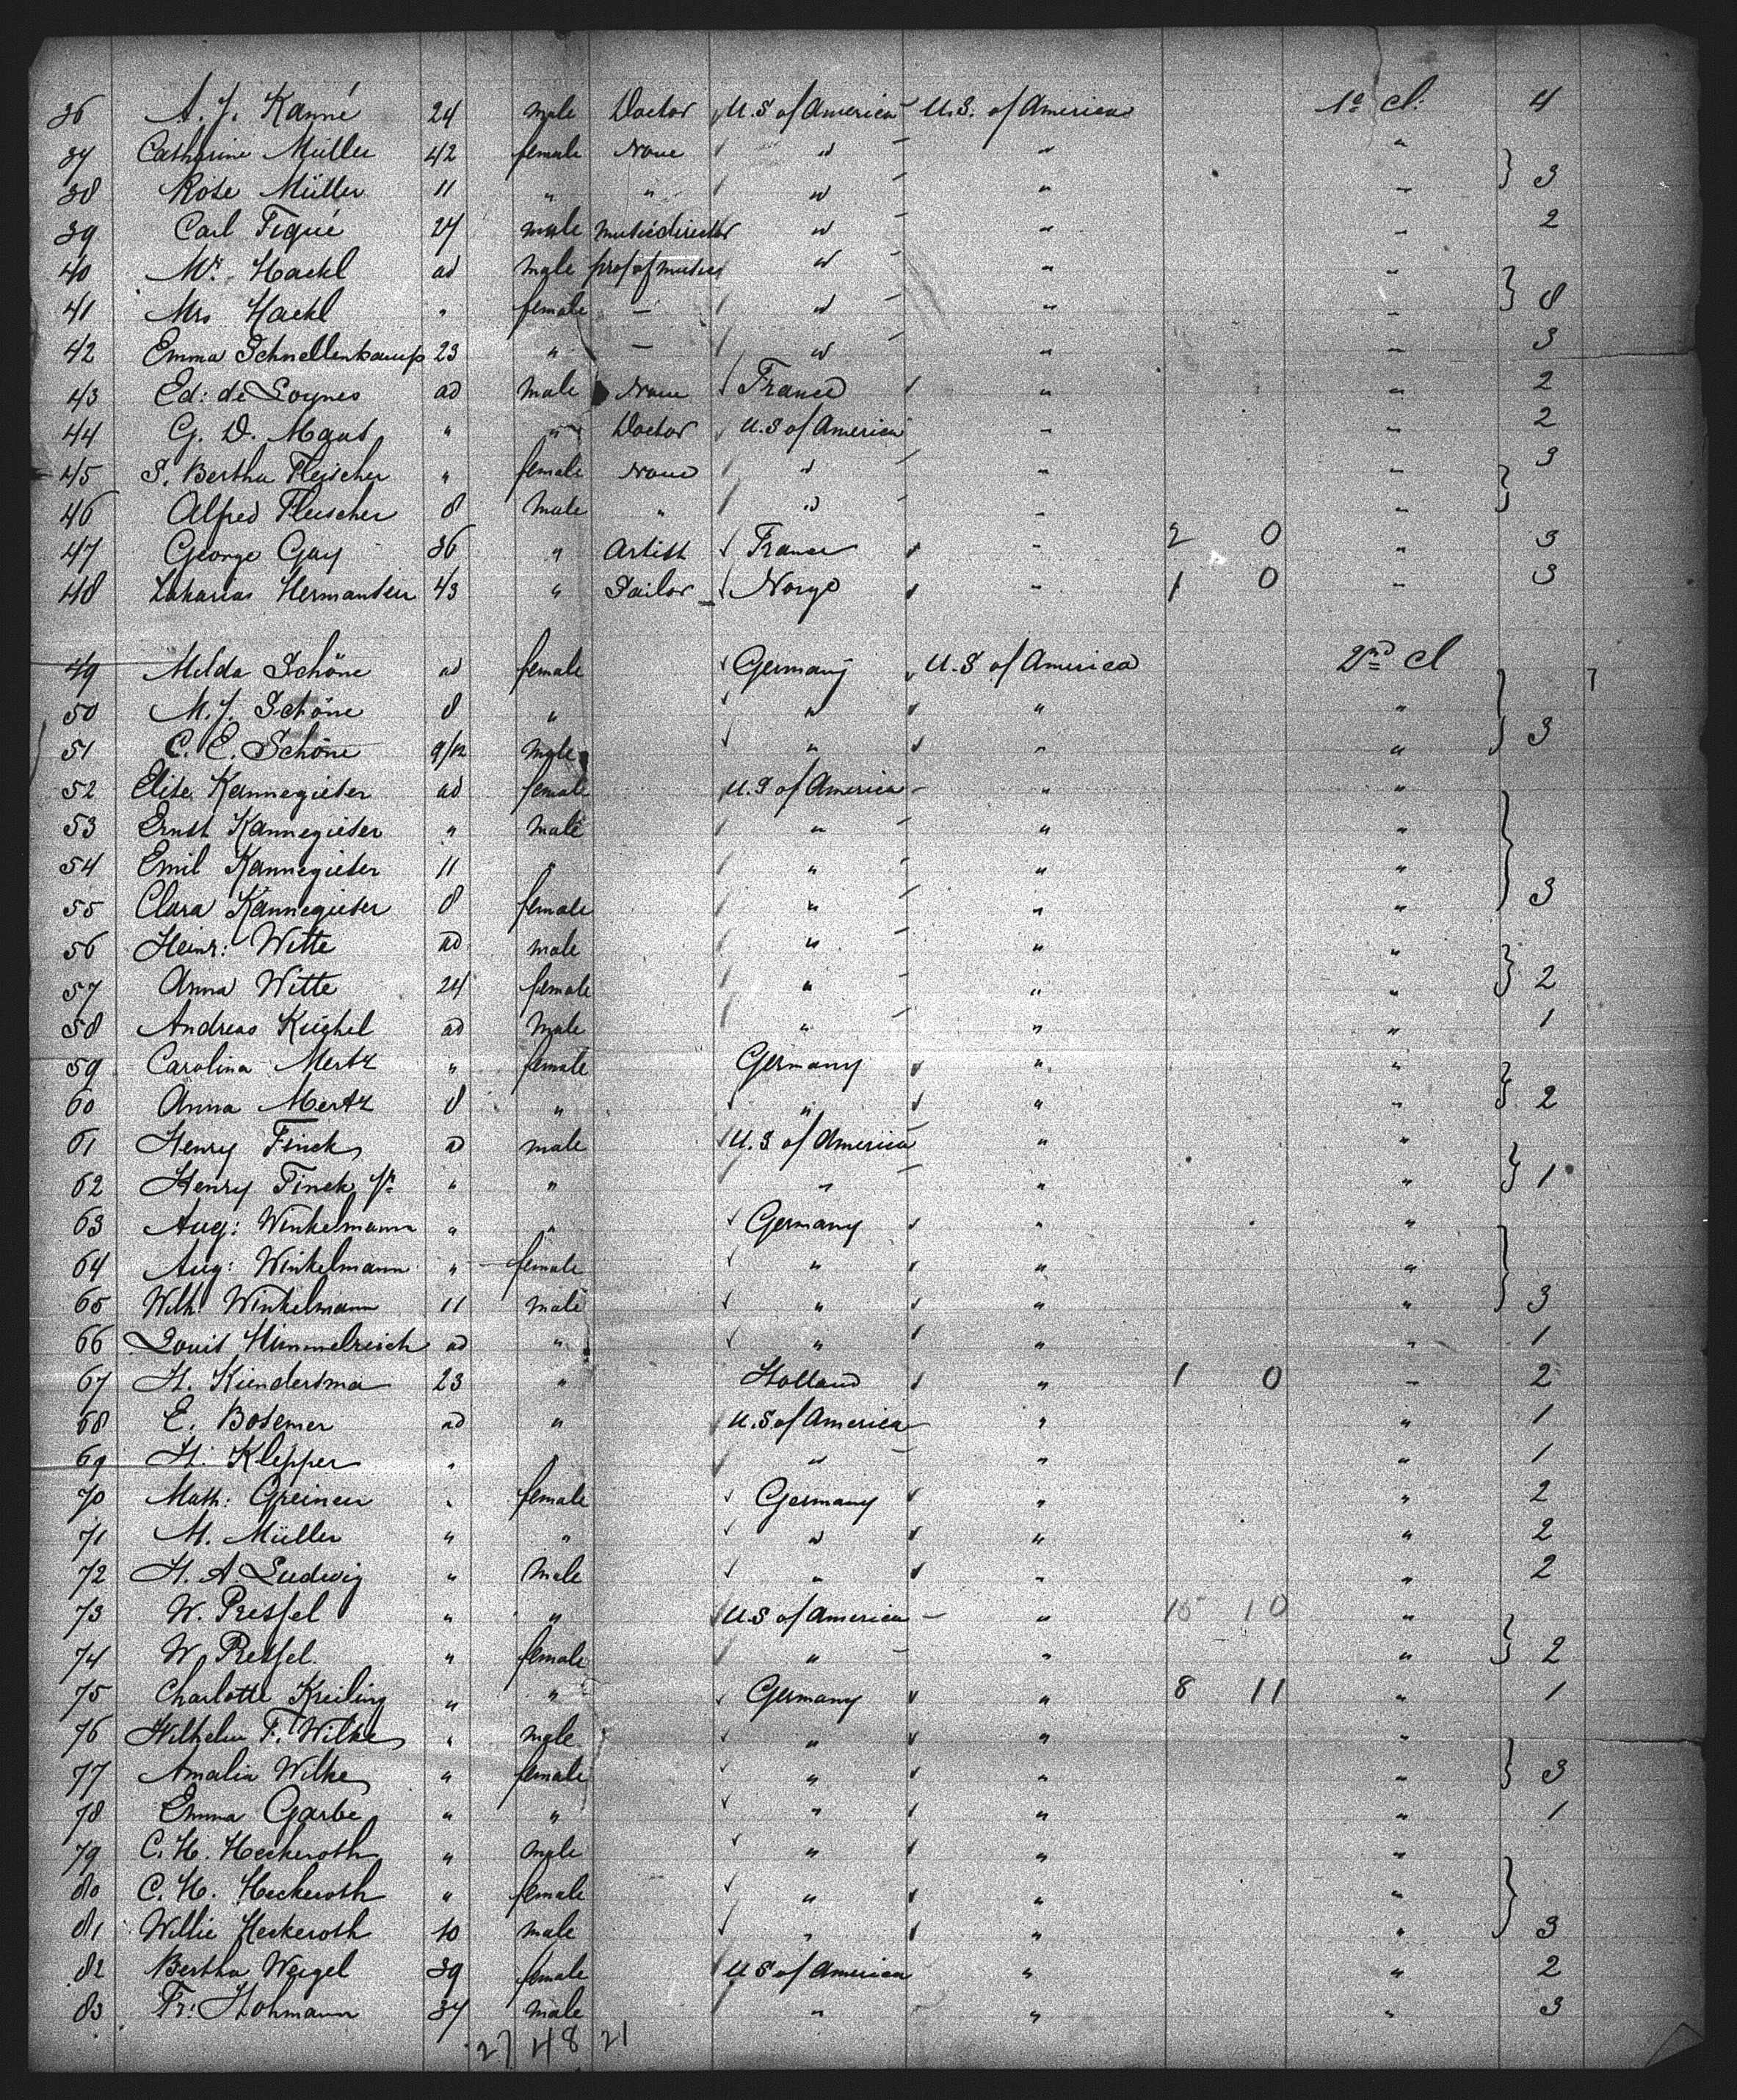 36 A. J. Kanné 24 male Doctor U.S of America U.S. of America 1º cl: 4
37 Catharine Müller 42 female None " " "
38 Rose Müller 11 " " " " " } 3
39 Carl Fiqué 27 male musicdirector " " " 2
40 Mr. Hackl ad male prof of music " " "
41 Mrs Hackl " female — " " " } 8
42 Emma Schnellenkamp 23 " — " " " 3
43 Ed: de Loynes ad male None France " " 2
44 G. D. " " Doctor U.S of America " " 2
45 S. Bertha Fleischer " female None " " " 3
46 Alfred Fleischer 8 male " " " " }
47 George Gay 36 " Artist France " 2 0 " 3
48 Zakarias Hermansen 43 " Sailor Norge " 1 0 " 3
49 Milda Schöne ad female Germany U.S of America 2nd cl
50 M. J. Schöne 8 " " " "
51 C. E. Schöne 9/12 male " " " } 3
52 Elise Kannegieser ad female U.S of America " "
53 Ernst Kannegieser " male " " "
54 Emil Kannegieser 11 " " " "
55 Clara Kannegieser 8 female " " " } 3
56 Heinr: Witte ad male " " "
57 Anna Witte 24 female " " " } 2
58 Andreas Küchel ad male " " " 1
59 Carolina Mertz " female Germany " "
60 Anna Mertz 8 " " " " } 2
61 Henry Finck ad male U.S of America " "
62 Henry Finck Jr " " " " " } 1
63 Aug: Winkelmann " " Germany " "
64 Aug: Winkelmann " female " " "
65 Wilh: Winkelmann 11 male " " " } 3
66 Louis Himmelreich ad " " " " 1
67 H. Kiendersma 23 " Holland " 1 0 " 2
68 E. Bosemer ad " U.S of America " " 1
69 H. Klepper " " " " " 1
70 Math: Greiner " female Germany " " 2
71 M. Müller " " " " " 2
72 H. A. Ludwig " male " " " 2
73 W. Pressel " " U.S of America " 15 10 "
74 W. Pressel " female " " " } 2
75 Charlotte Kreiling " " Germany " 8 11 " 1
76 Wilhelm F. Wilke " male " " "
77 Amalia Wilke " female " " " } 3
78 Emma Garbe " " " " " 1
79 C. H. Heckeroth " male " " "
80 C. H. Heckeroth " female " " "
81 Willie Heckeroth 10 male " " " } 3
82 Bertha Weigel 39 female U S of America " " 2
83 Fr: Hohmann 37 male " " " 3
27 48 21